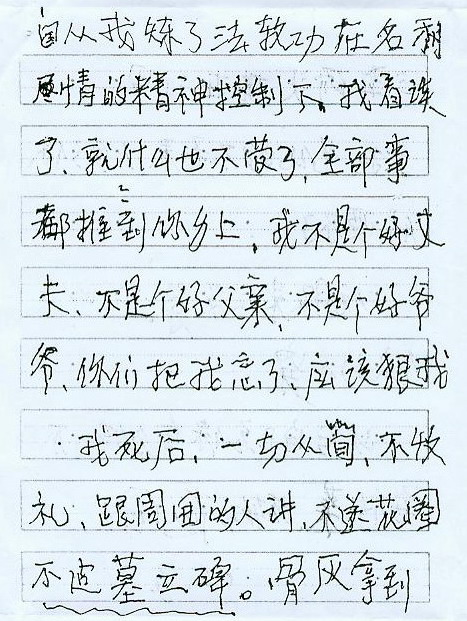 自从我炼了法轮功在名
情的精神控制下,我着
了、就什么也不管了,全部事
都推到你身上,我不是个好丈
夫、不是个好父亲、不是个好爷
爷、你们把我忘了、应该狠我
我死后,一切从简、不收
礼、跟周围的人讲、不送花圈
不造墓立碑。骨灰拿到